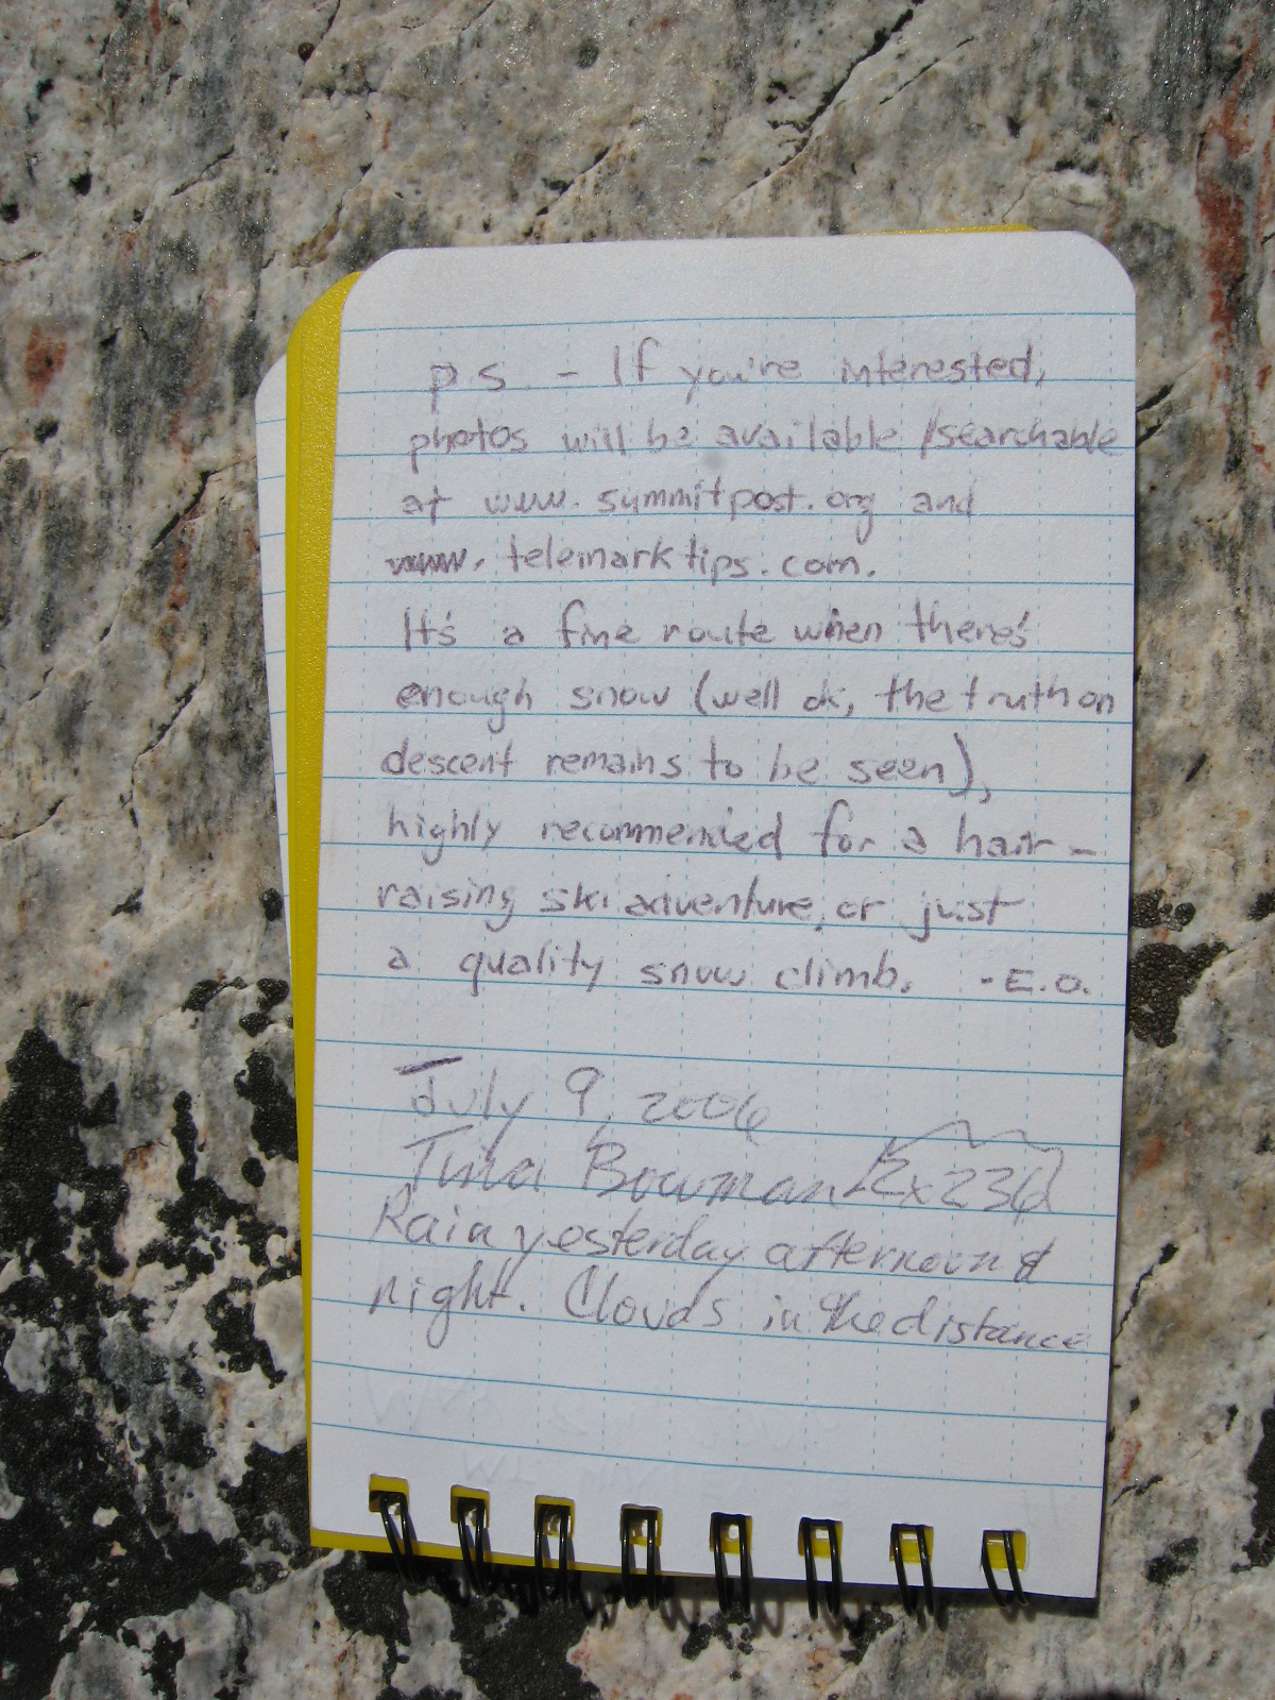 ps - If you're interested,
photos will be available/searchable
at www.summitpost.org and
www.telemarktips.com.
It's a fine route when there's
enough snow (well ok, the truth on
descent remains to be seen),
highly recommended for a hair-
raising ski adventure, or just
a quality snow climb. -E.O.
July 9, 2006
Tina Bowman 2x236
Rain yesterday afternoon &
night. Clouds in the distance